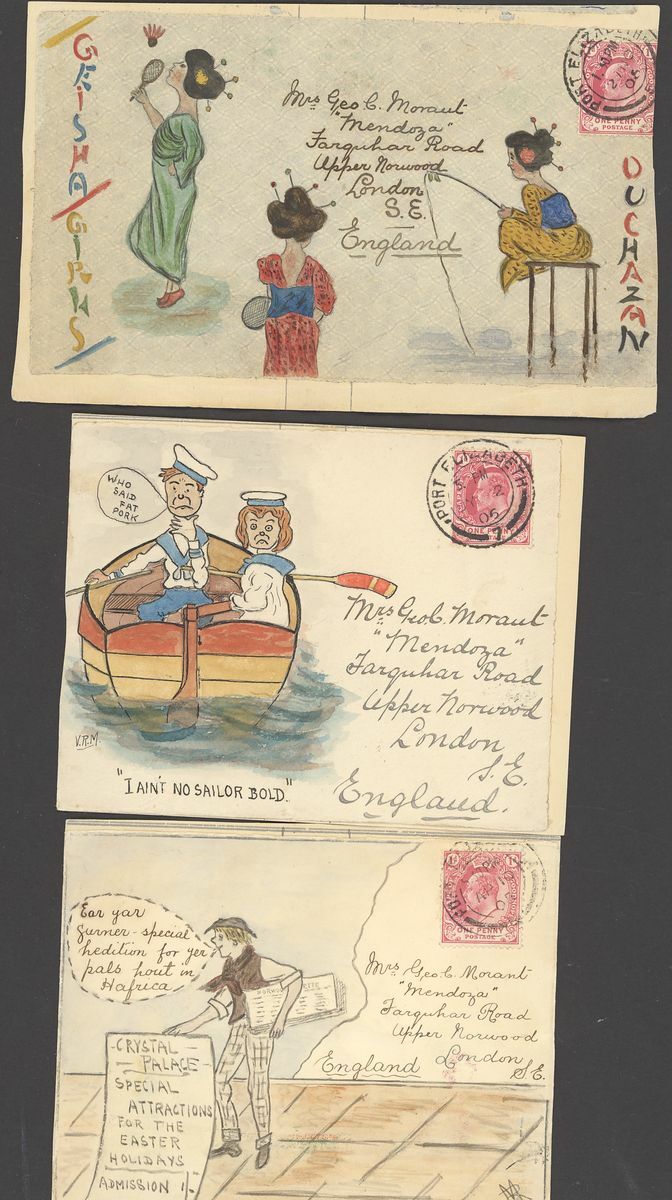 GEISHA GIRLS
Mrs Geo C. Morant
"Mendoza"
Farquhar Road
Upper Norwood
London
S.E.
England
PORT ELIZABETH
ONE PENNY
POSTAGE
OUCHAZAN
WHO
SAID
FAT
PORK
PORT ELIZABETH
2
05
7
ONE PENNY
Mrs Geo C. Morant
"Mendoza"
Farquhar Road
Upper Norwood
London
S.E.
England.
V.R.M.
"I AIN'T NO SAILOR BOLD."
Ear yar
gurner-special
hedition for yer
pals hout in
Hafrica
ONE PENNY
POSTAGE
Mrs Geo C Morant
"Mendoza"
Farquhar Road
Upper Norwood
London
S.E.
England
CRYSTAL
PALACE
SPECIAL
ATTRACTIONS
FOR THE
EASTER
HOLIDAYS
ADMISSION 1/-